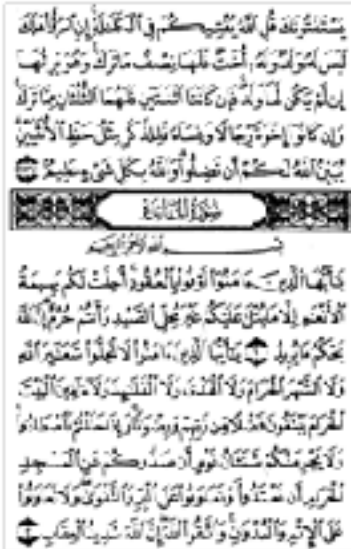 يَسْتَفْتُونَكَ قُلِ اللَّهُ يُفْتِيكُمْ فِي الْكَلَالَةِ إِنِ امْرُؤٌا هَلَكَ
لَيْسَ لَهُ وَلَدٌ وَلَهُ أُخْتٌ فَلَهَا نِصْفُ مَا تَرَكَ وَهُوَ يَرِثُهَا
إِن لَّمْ يَكُن لَّهَا وَلَدٌ فَإِن كَانَتَا اثْنَتَيْنِ فَلَهُمَا الثُّلُثَانِ مِمَّا تَرَكَ
وَإِن كَانُوا إِخْوَةً رِّجَالًا وَنِسَاءً فَلِلذَّكَرِ مِثْلُ حَظِّ الْأُنثَيَيْنِ
يُبَيِّنُ اللَّهُ لَكُمْ أَن تَضِلُّوا وَاللَّهُ بِكُلِّ شَيْءٍ عَلِيمٌ ١٧٦
سُورَةُ الْمَائِدَةِ
بِسْمِ اللَّهِ الرَّحْمَٰنِ الرَّحِيمِ
يَا أَيُّهَا الَّذِينَ آمَنُوا أَوْفُوا بِالْعُقُودِ أُحِلَّتْ لَكُم بَهِيمَةُ
الْأَنْعَامِ إِلَّا مَا يُتْلَىٰ عَلَيْكُمْ غَيْرَ مُحِلِّي الصَّيْدِ وَأَنتُمْ حُرُمٌ إِنَّ اللَّهَ
يَحْكُمُ مَا يُرِيدُ ١ يَا أَيُّهَا الَّذِينَ آمَنُوا لَا تُحِلُّوا شَعَائِرَ اللَّهِ
وَلَا الشَّهْرَ الْحَرَامَ وَلَا الْهَدْيَ وَلَا الْقَلَائِدَ وَلَا آمِّينَ الْبَيْتَ
الْحَرَامَ يَبْتَغُونَ فَضْلًا مِّن رَّبِّهِمْ وَرِضْوَانًا وَإِذَا حَلَلْتُمْ فَاصْطَادُوا
وَلَا يَجْرِمَنَّكُمْ شَنَآنُ قَوْمٍ أَن صَدُّوكُمْ عَنِ الْمَسْجِدِ
الْحَرَامِ أَن تَعْتَدُوا وَتَعَاوَنُوا عَلَى الْبِرِّ وَالتَّقْوَىٰ وَلَا تَعَاوَنُوا
عَلَى الْإِثْمِ وَالْعُدْوَانِ وَاتَّقُوا اللَّهَ إِنَّ اللَّهَ شَدِيدُ الْعِقَابِ ٢